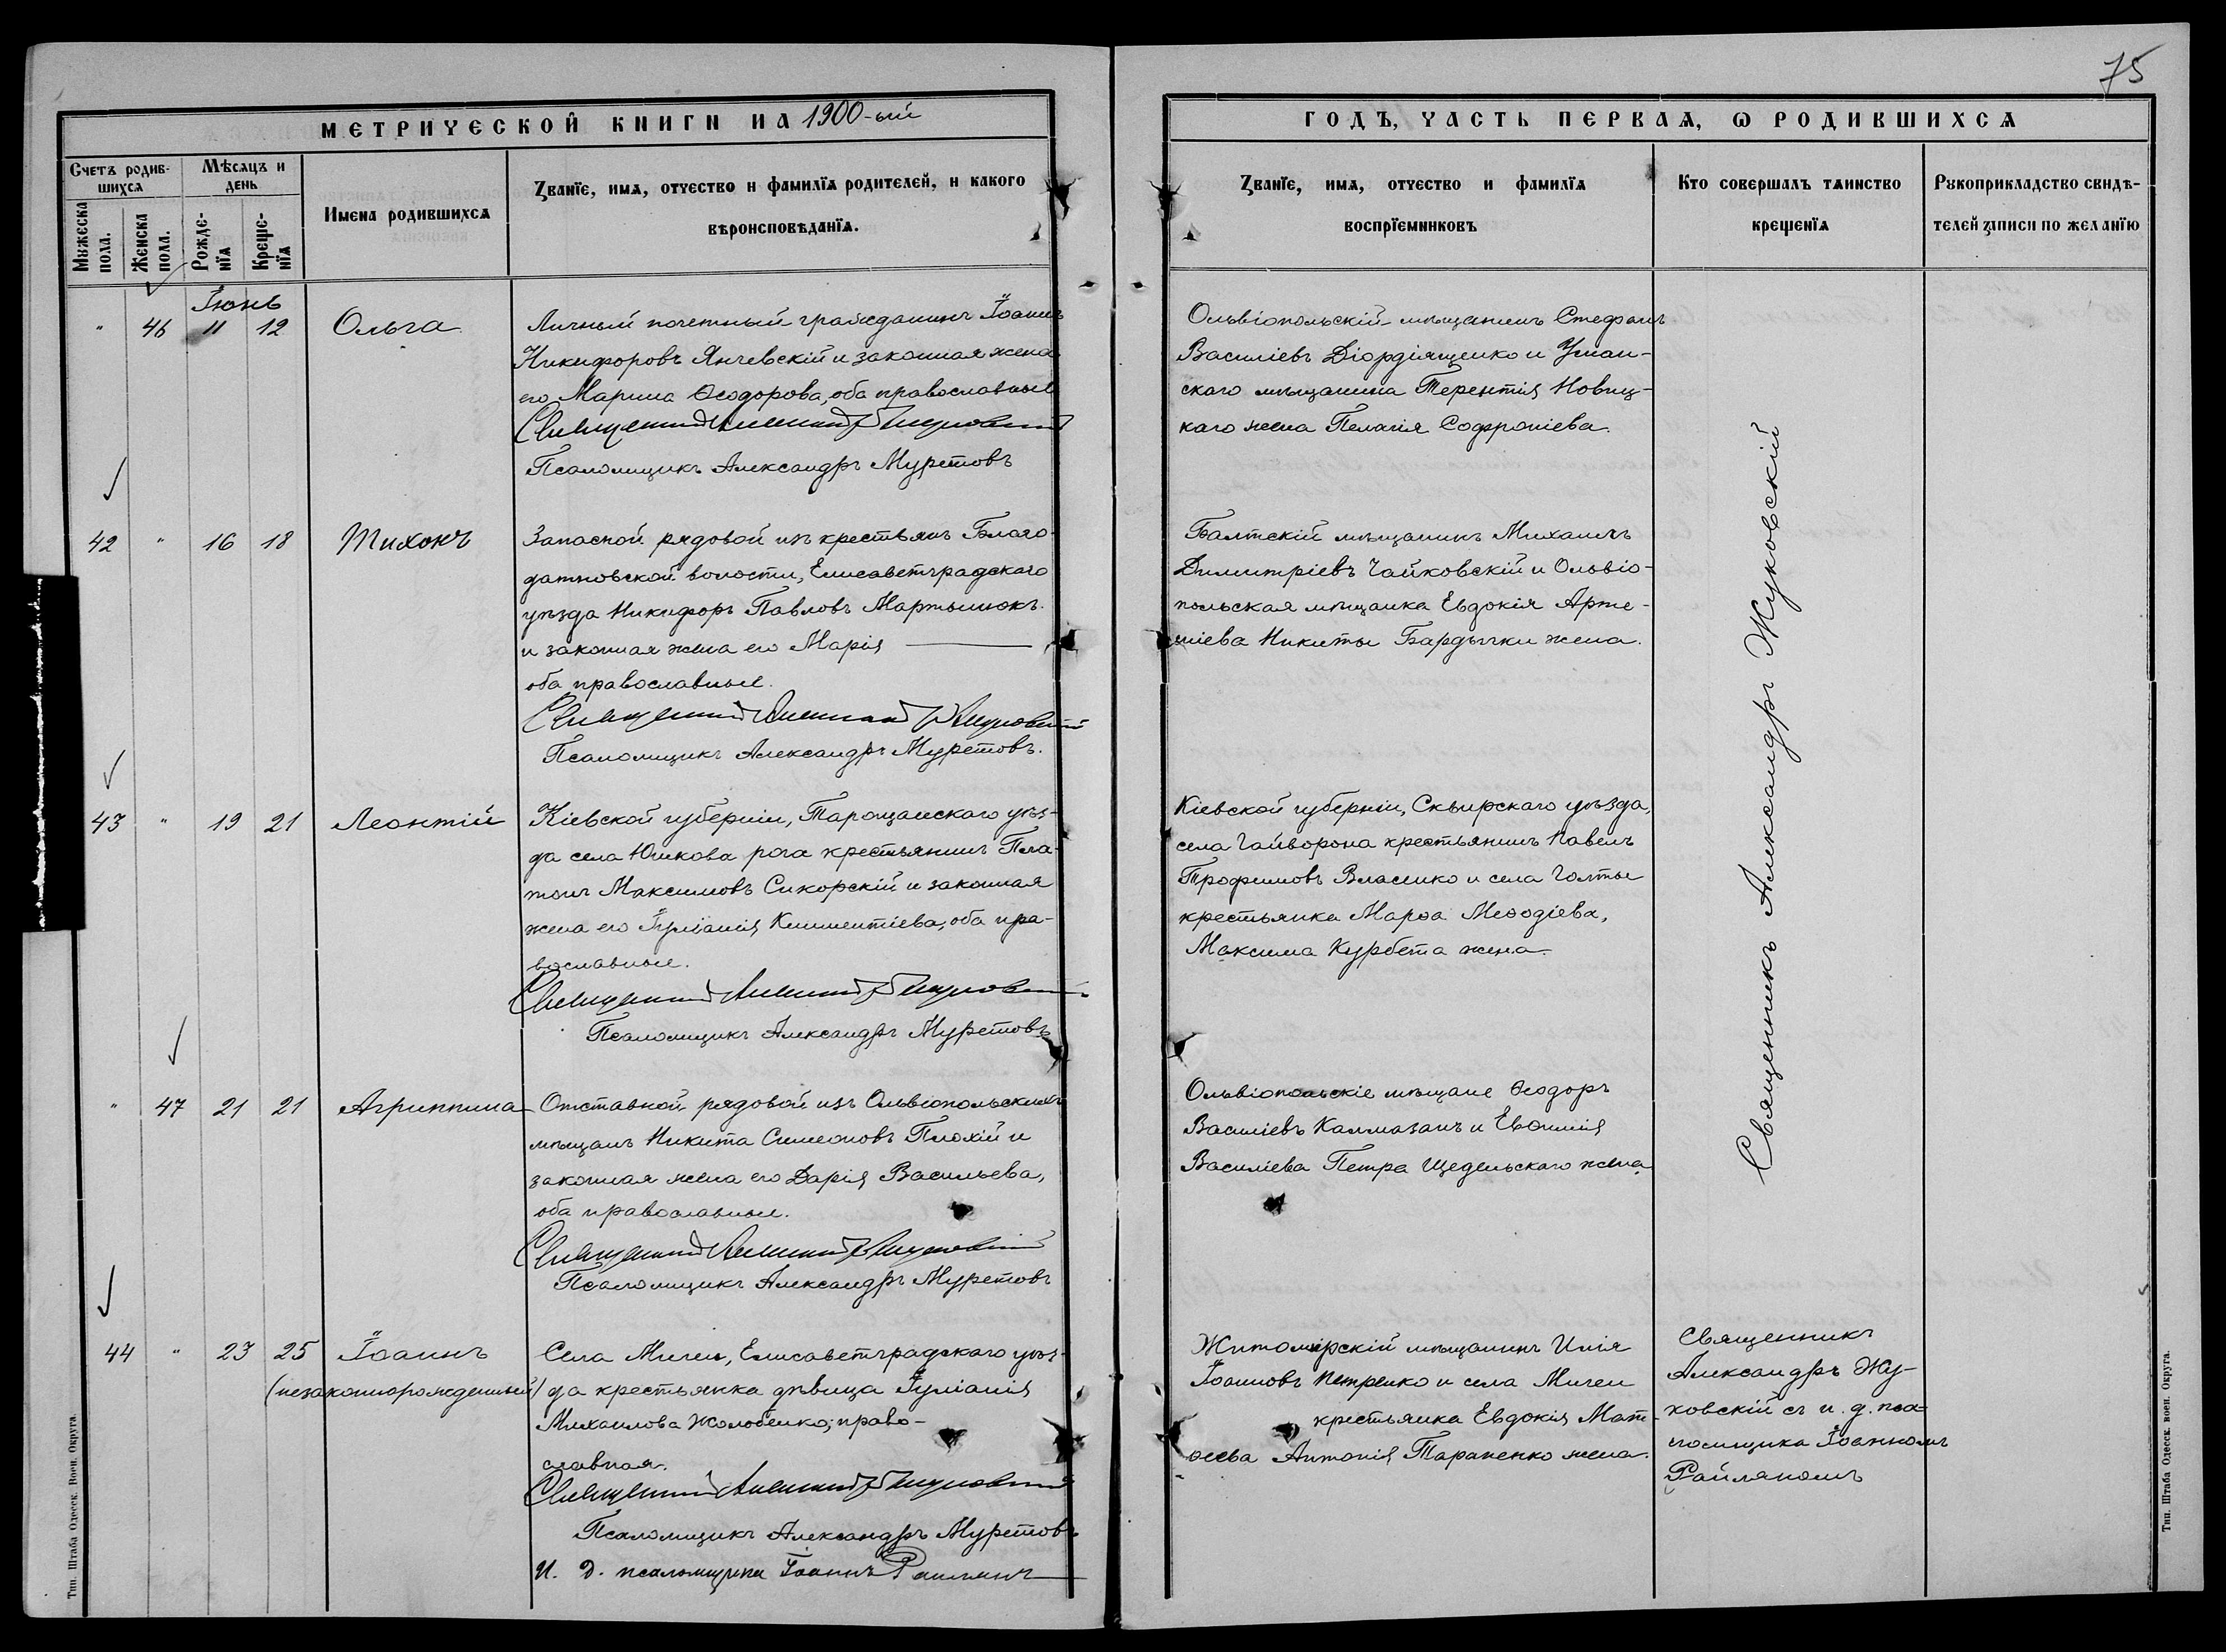 75
МЕТРИЧЕСКОЙ КНИГИ НА 1900-ый
ГОДЪ, ЧАСТЬ ПЕРВАЯ, Ѡ РОДИВШИХСЯ
Счетъ родив-
шихся
Мѣсяцъ и
день
Мужеска
пола.
Женска
пола.
Рожде-
нїя
Креще-
нїя
Имена родившихся
Званїе, имя, отчество и фамилїя родителей, и какого
вѣроисповѣданїя.
Званїе, имя, отчество и фамилїя
воспрїемниковъ
Кто совершалъ таинство
крещенїя
Рукоприкладство свидѣ-
телей записи по желанїю
Іюнь
" 46 11 12 Ольга
Личный почетный гражданинъ Іоаннъ
Никифоровъ Янчевскій и законная жена
его Марина Ѳеодорова, оба православные
Священникъ Александръ Жуковскій
Псаломщикъ Александръ Муретовъ
Ольвіопольскій мѣщанинъ Стефанъ
Василіевъ Діордіященко и Уман-
скаго мѣщанина Терентія Новиц-
каго жена Пелагія Софроніева.
42 " 16 18 Тихонъ
Запасной рядовой изъ крестьянъ Благо-
датновской волости, Елисаветградскаго
уѣзда Никифоръ Павловъ Мартынюкъ
и законная жена его Марія
оба православные.
Священникъ Александръ Жуковскій
Псаломщикъ Александръ Муретовъ.
Балтскій мѣщанинъ Михаилъ
Димитріевъ Чайковскій и Ольвіо-
польская мѣщанка Евдокія Арте-
міева Никиты Бардычки жена.
43 " 19 21 Леонтій
Кіевской губерніи, Таращанскаго уѣз-
да села Юшкова рога крестьянинъ Пла-
тонъ Максимовъ Сикорскій и законная
жена его Іуліанія Климентіева, оба пра-
вославные.
Священникъ Александръ Жуковскій
Псаломщикъ Александръ Муретовъ
Кіевской губерніи, Сквирскаго уѣзда,
села Гайворона крестьянинъ Павелъ
Трофимовъ Власенко и села Голты
крестьянка Марѳа Меѳодіева,
Максима Курбета жена.
" 47 21 21 Агриппина
Отставной рядовой изъ Ольвіопольскихъ
мѣщанъ Никита Симеоновъ Плохій и
законная жена его Дарія Васильева,
оба православные.
Священникъ Александръ Жуковскій
Псаломщикъ Александръ Муретовъ
Ольвіопольскіе мѣщане Ѳеодоръ
Василіевъ Калмазанъ и Евѳимія
Василіева Петра Щедельскаго жена.
Священникъ Александръ Жуковскій
44 " 23 25 Іоаннъ
(незаконнорожденный)
Села Мигеи, Елисаветградскаго уѣз-
да крестьянка дѣвица Іуліанія
Михаилова Жолобенко, право-
славная.
Священникъ Александръ Жуковскій
Псаломщикъ Александръ Муретовъ
И. д. псаломщика Іоаннъ Райлянъ
Житомірскій мѣщанинъ Илія
Іоанновъ Петренко и села Мигеи
крестьянка Евдокія Мат-
ѳеева Антонія Тараненко жена.
Священникъ
Александръ Жу-
ковскій съ и. д. пса-
ломщика Іоанномъ
Райляномъ
Тип. Штаба Одесск. Воен. Округа.
Тип. Штаба Одесск. воен. Округа.